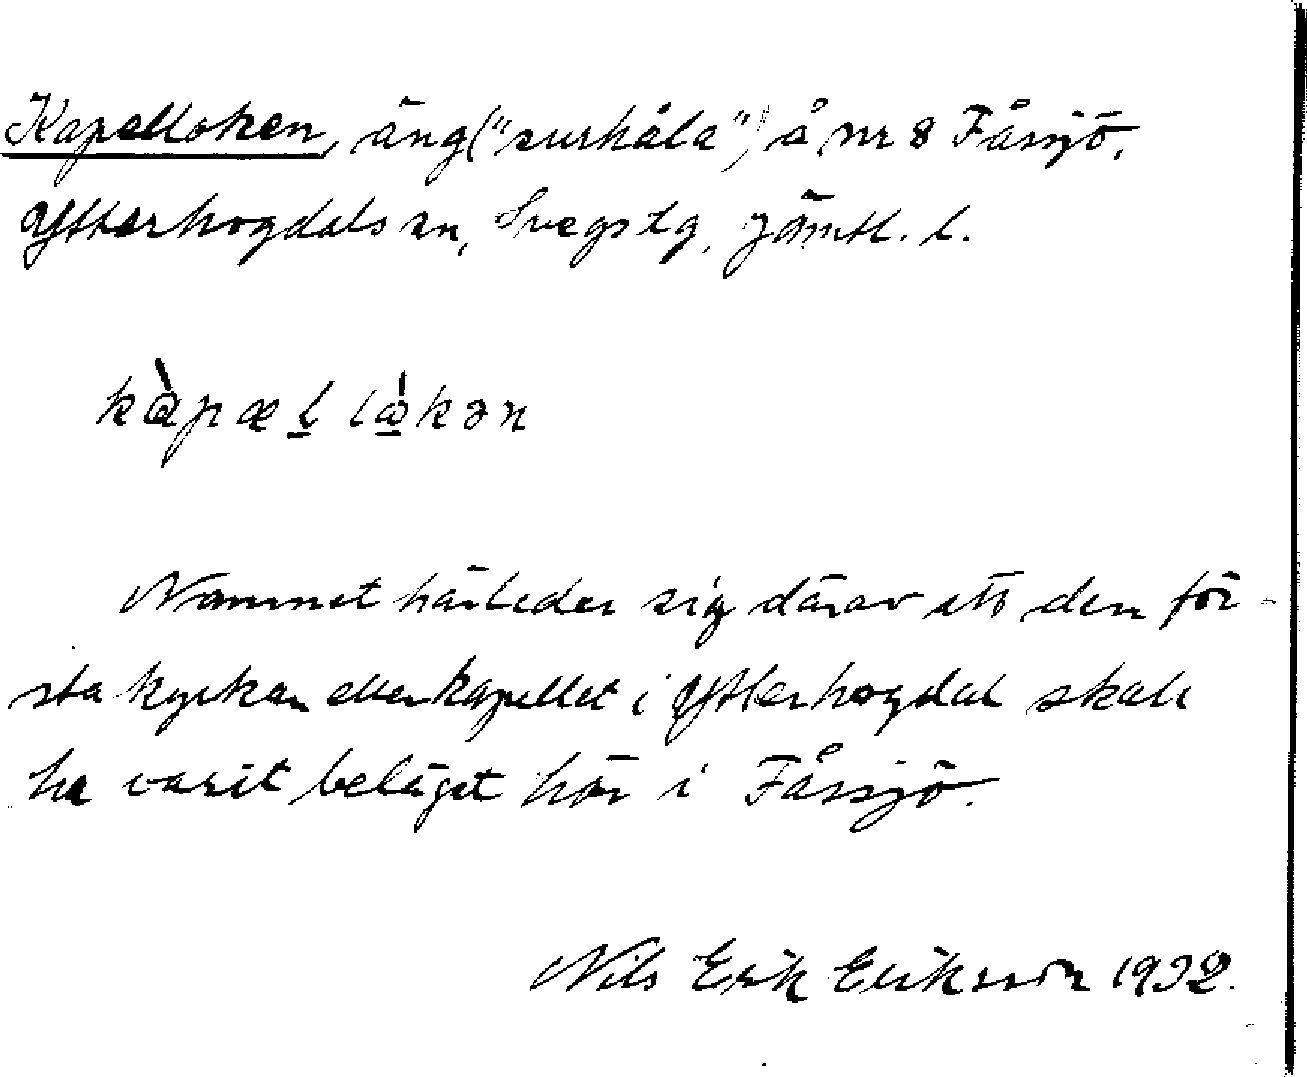 Kapelloken, äng ("surhåla") å nr 8 Fåssjö,
Ytterhogdals sn, Svegs tg, Jämtl. l.
kàpæl låkən
Namnet härleder sig därav att den för-
sta kyrkan eller kapellet i Ytterhogdal skall
ha varit beläget här i Fåssjö.
Nils Erik Eriksson 1932.